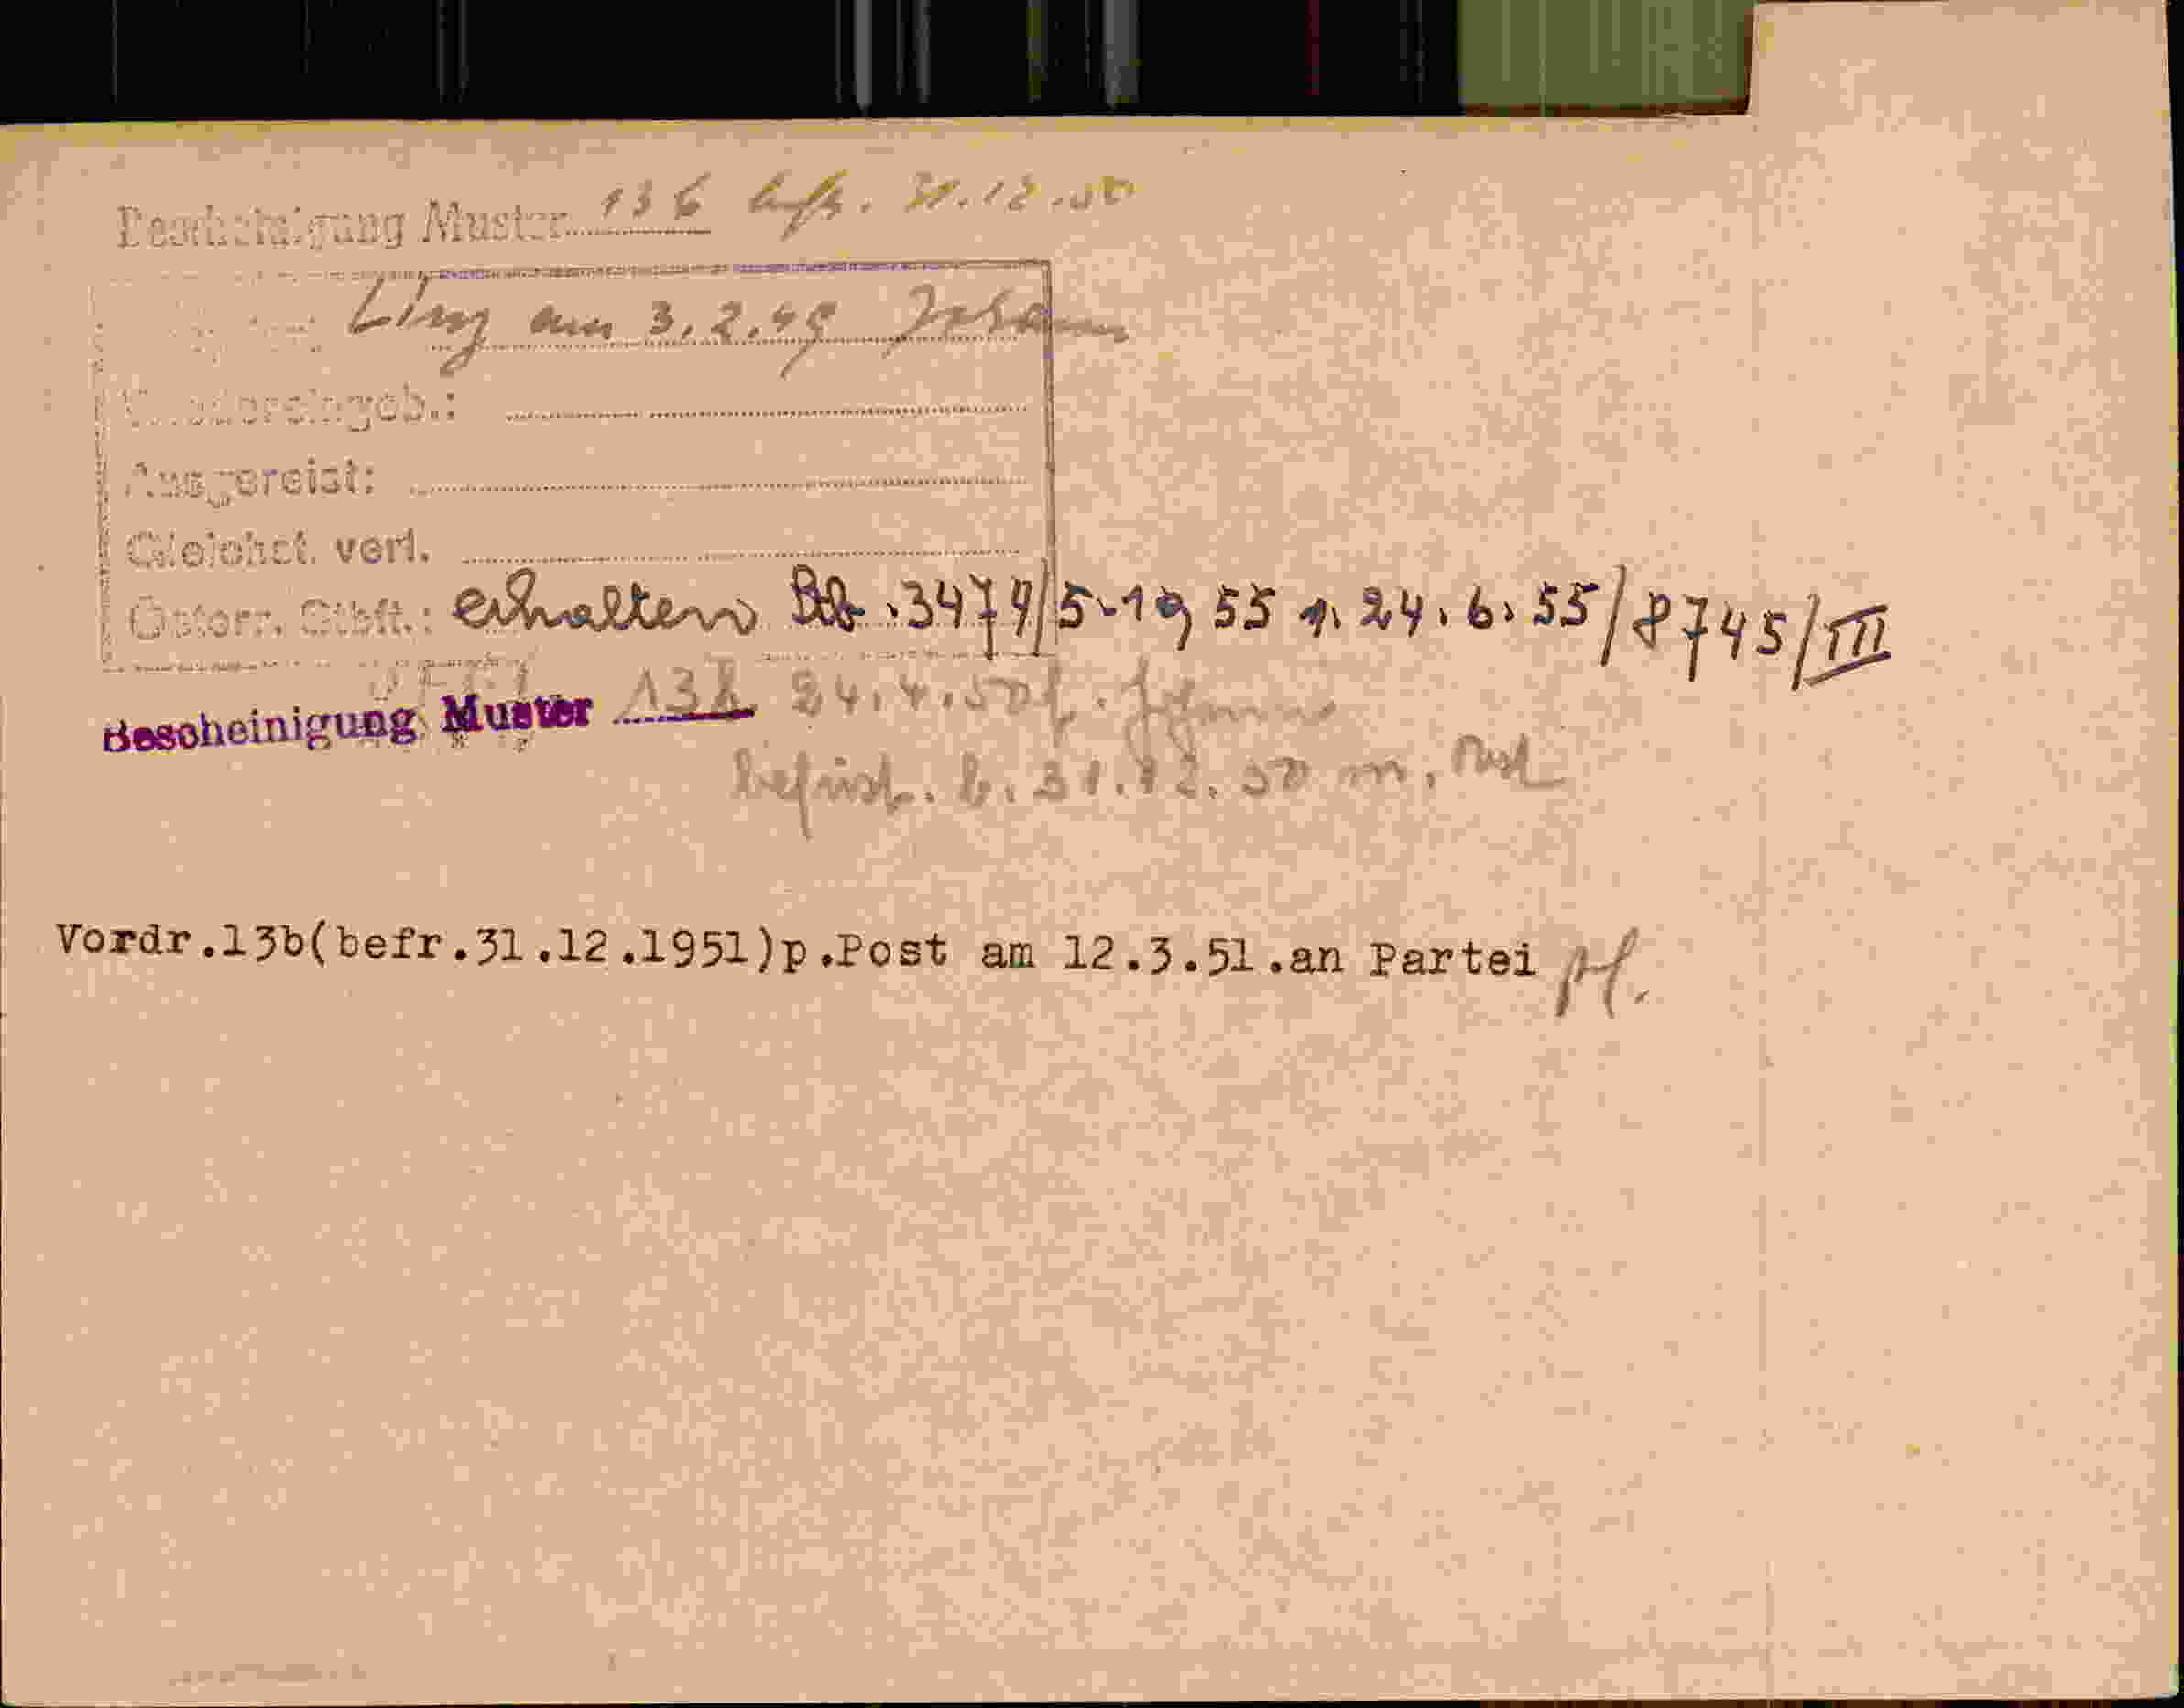 Bescheinigung Muster 13b befr. 31.12.50
Linz am 3.2.49
Wiedereingeb.:
Ausgereist:
Gleichst. verl.
Österr. Stbft.: erhalten Stb. 3474/5-1955 v. 24.6.55/8745/III
Bescheinigung Muster 13b 24.4.50
befrist. b. 31.12.50 m. Post
Vordr.13b(befr.31.12.1951)p.Post am 12.3.51.an Partei